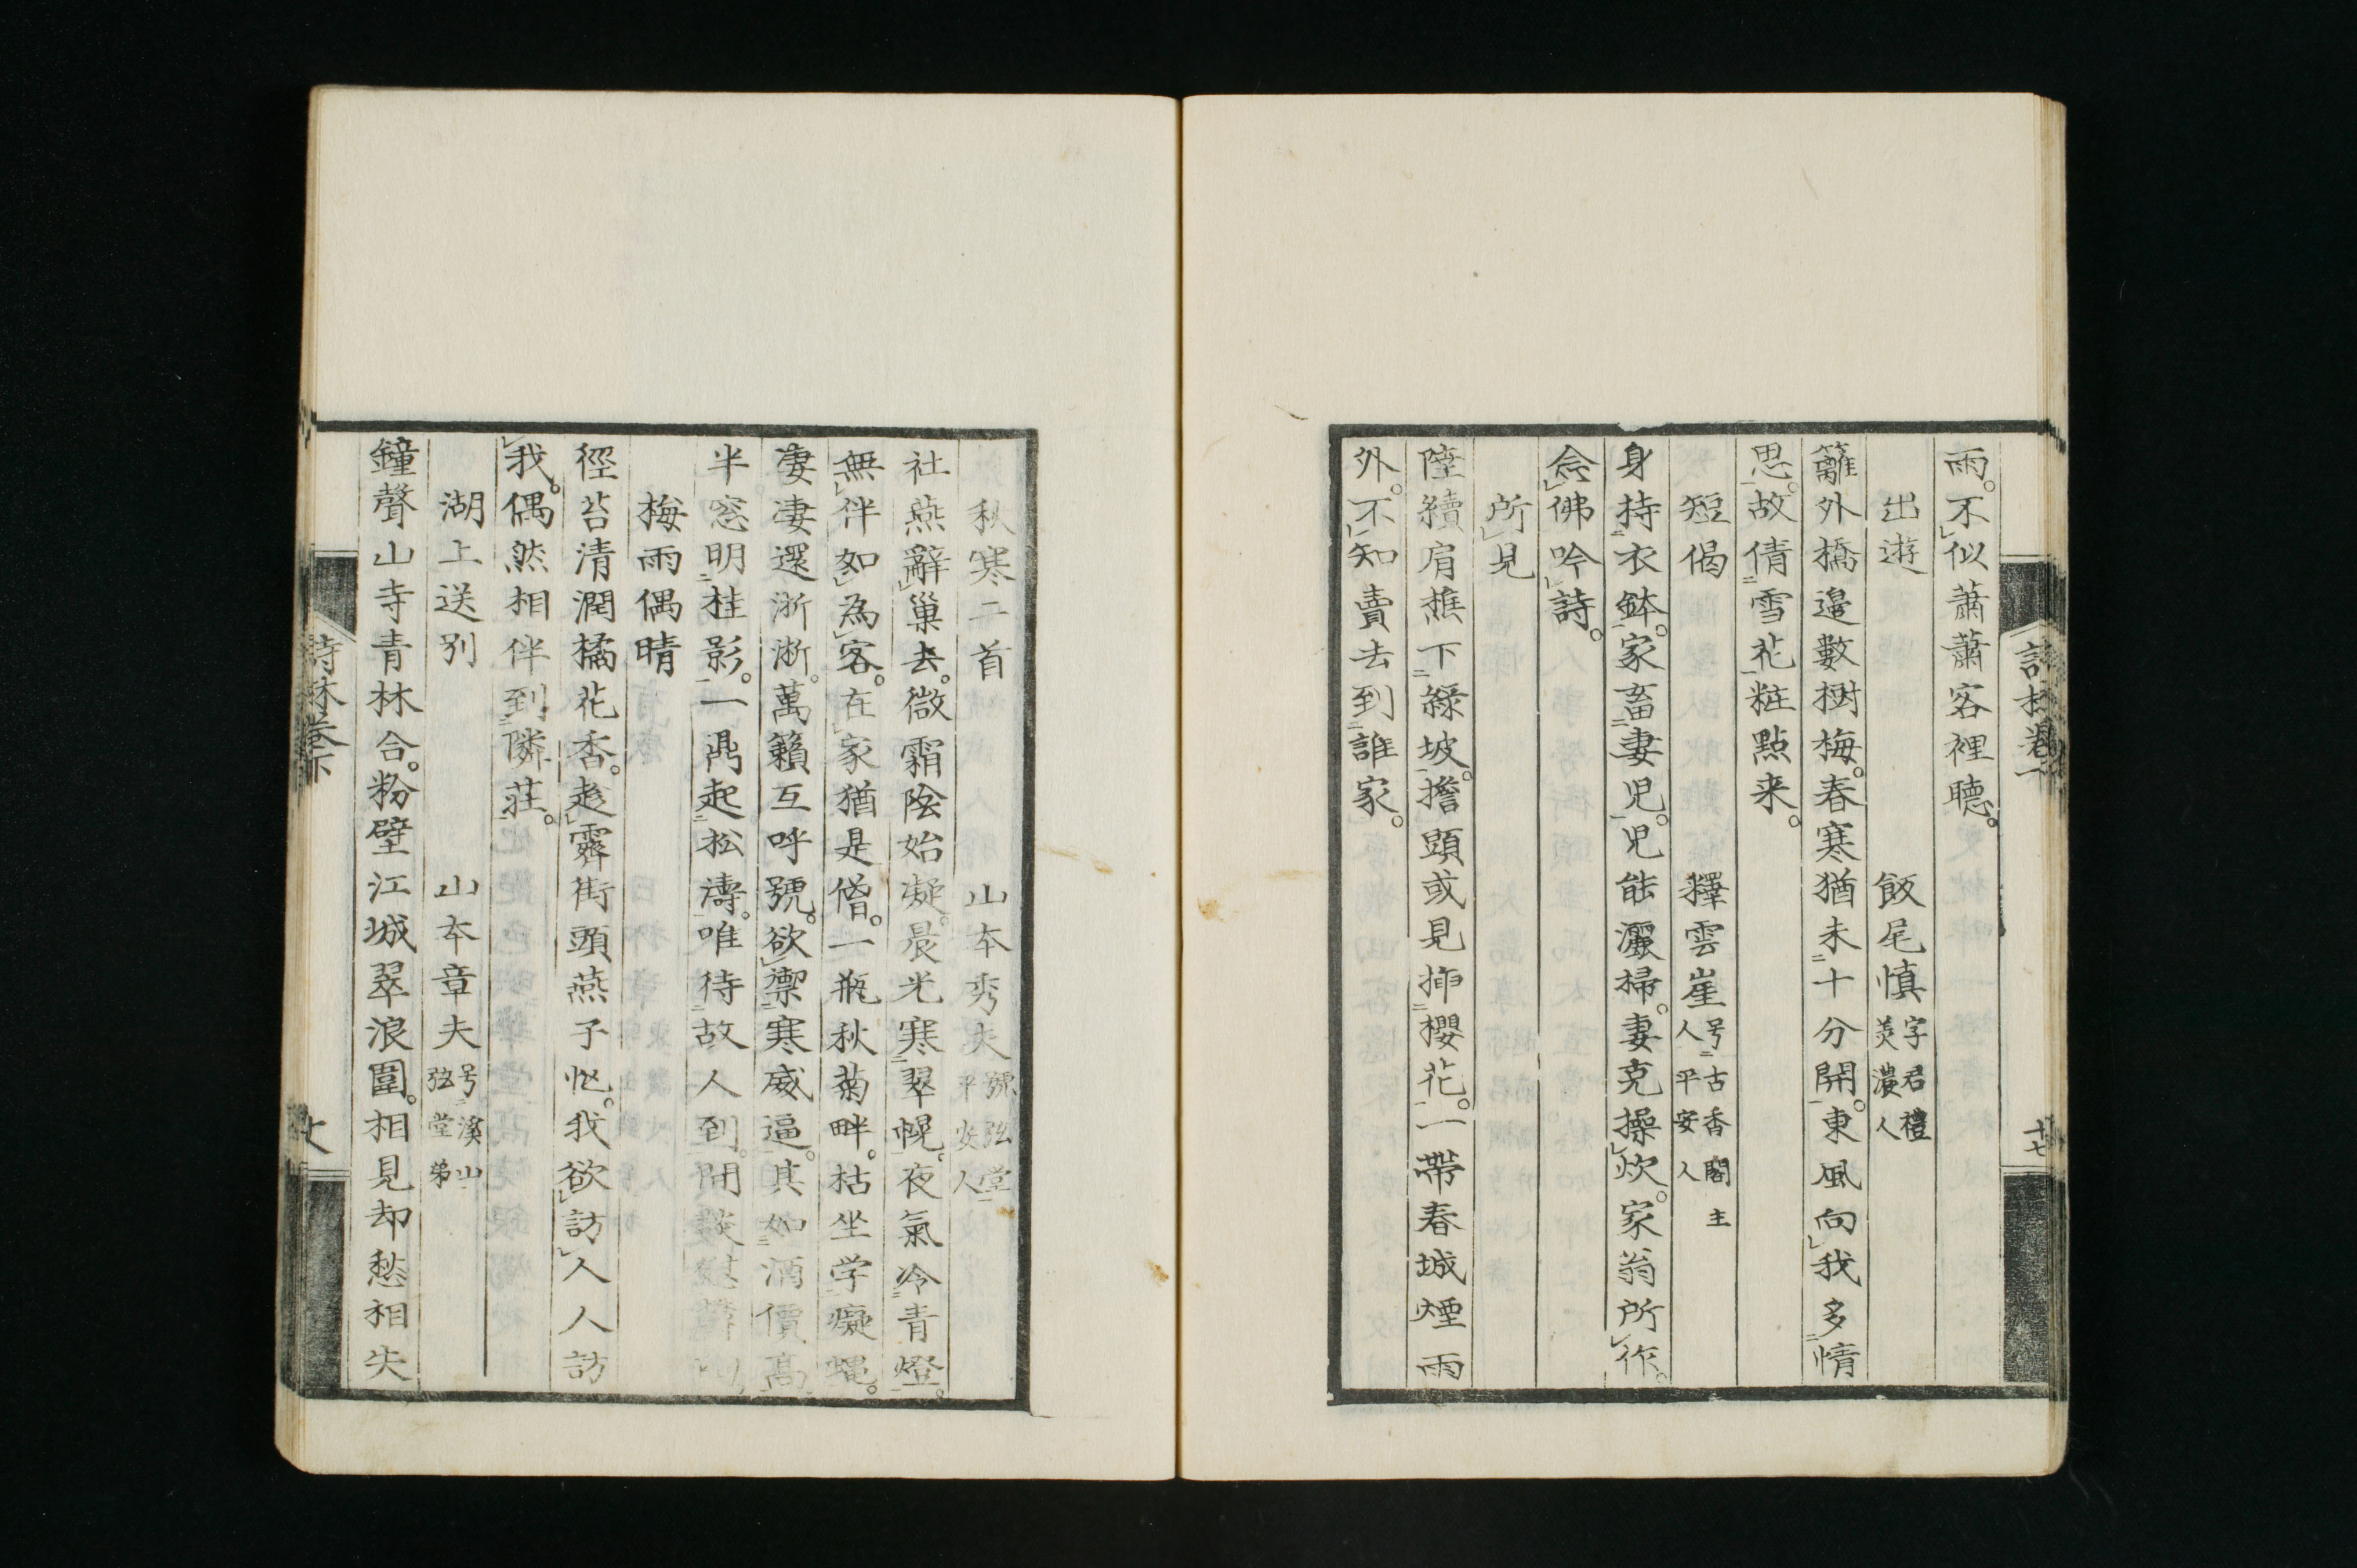 雨。不似蕭蕭客裡聽。
出遊　飯尾慎字君禮羙濃人
籬外橋邉數樹梅。春寒猶未十分開。東風向我多情
思。故倩雪花粧點来。
短偈　釋雲崖号古香閣主人平安人
身持衣鉢。家畜妻児。児能灑掃。妻克操炊。家翁所作。
念佛吟詩。
所見
陸續肩樵下綠坡。擔頭或見挿櫻花。一帶春城煙雨
外。不知賣去到誰家。
十七
秋寒二首　山本秀夫號弦堂平安人
社燕辭巢去。微霜陰始凝。晨光寒翠幌。夜氣冷青燈。
無伴如為客。在家猶是僧。一瓶秋菊畔。枯坐学癡蝿。
凄凄還淅淅。萬籟互呼號。欲禦寒威逼。其如酒價高。
半窓明桂影。一鼎起松濤。唯待故人到。閒談
梅雨偶晴
徑苔清潤橘花香。趁霽街頭燕子忙。我欲訪人人訪
我。偶然相伴到隣莊。
湖上送別　山本章夫号溪山弦堂弟
鐘聲山寺青林合。粉壁江城翠浪圍。相見却愁相失
詩林卷下